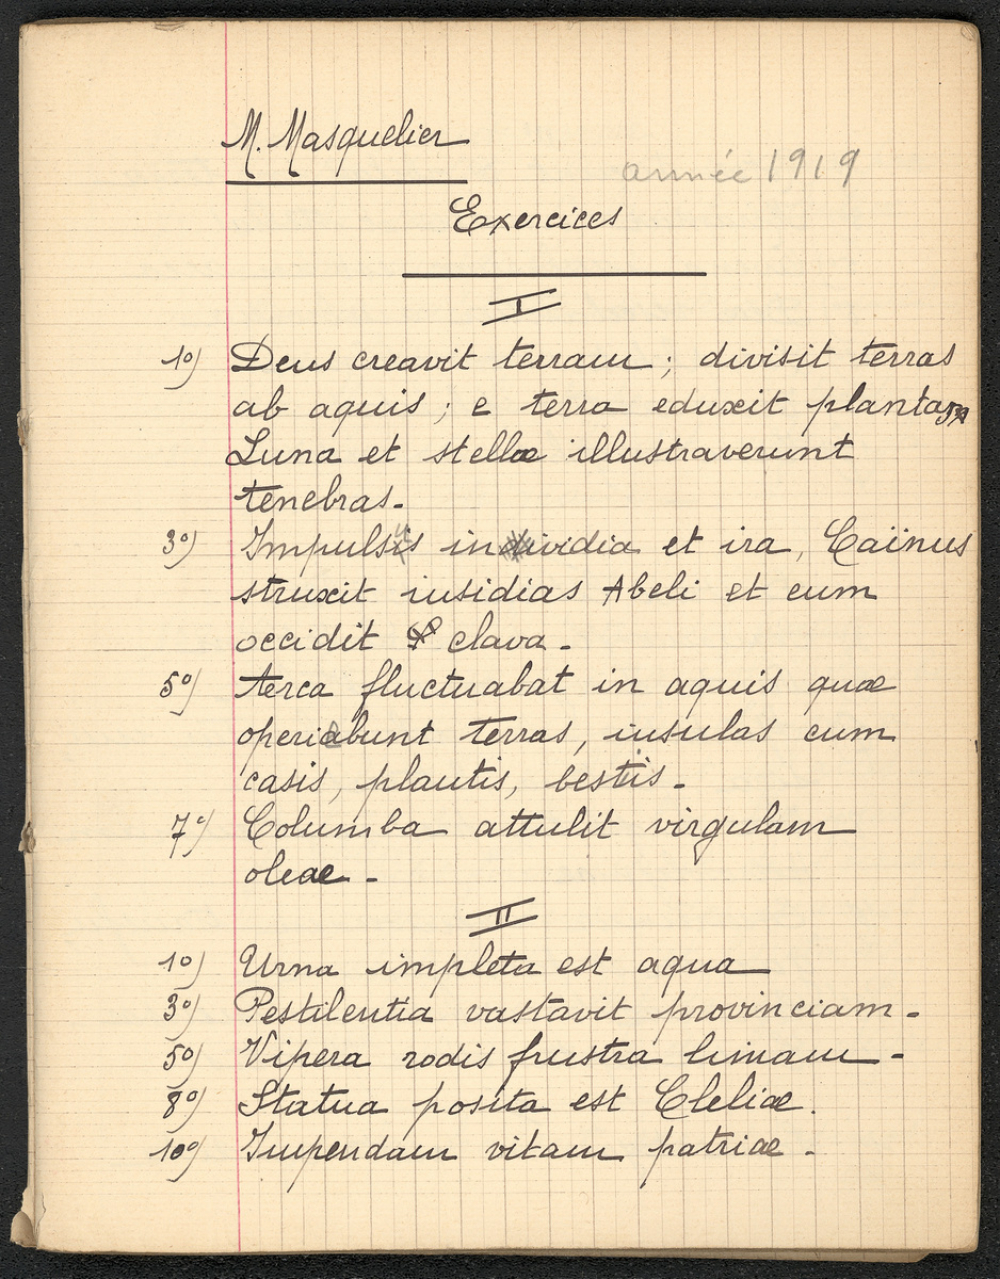 M. Masquelier
année 1919
Exercices
I
1º) Deus creavit terram ; divisit terras
ab aquis ; e terra eduxit plantas
Luna et stellæ illustraverunt
tenebras.
3º) Impulsus invidia et ira, Caïnus
struxit insidias Abeli et eum
occidit clava.
5º) Arca fluctuabat in aquis quæ
operiebunt terras, insulas cum
casis, plantis, bestiis.
7º) Columba attulit virgulam
oleae.
II
1º) Urna impleta est aqua
3º) Pestilentia vastavit provinciam.
5º) Vipera rodis frustra limam.
8º) Statua posita est Cleliæ.
10º) Impendam vitam patriæ.